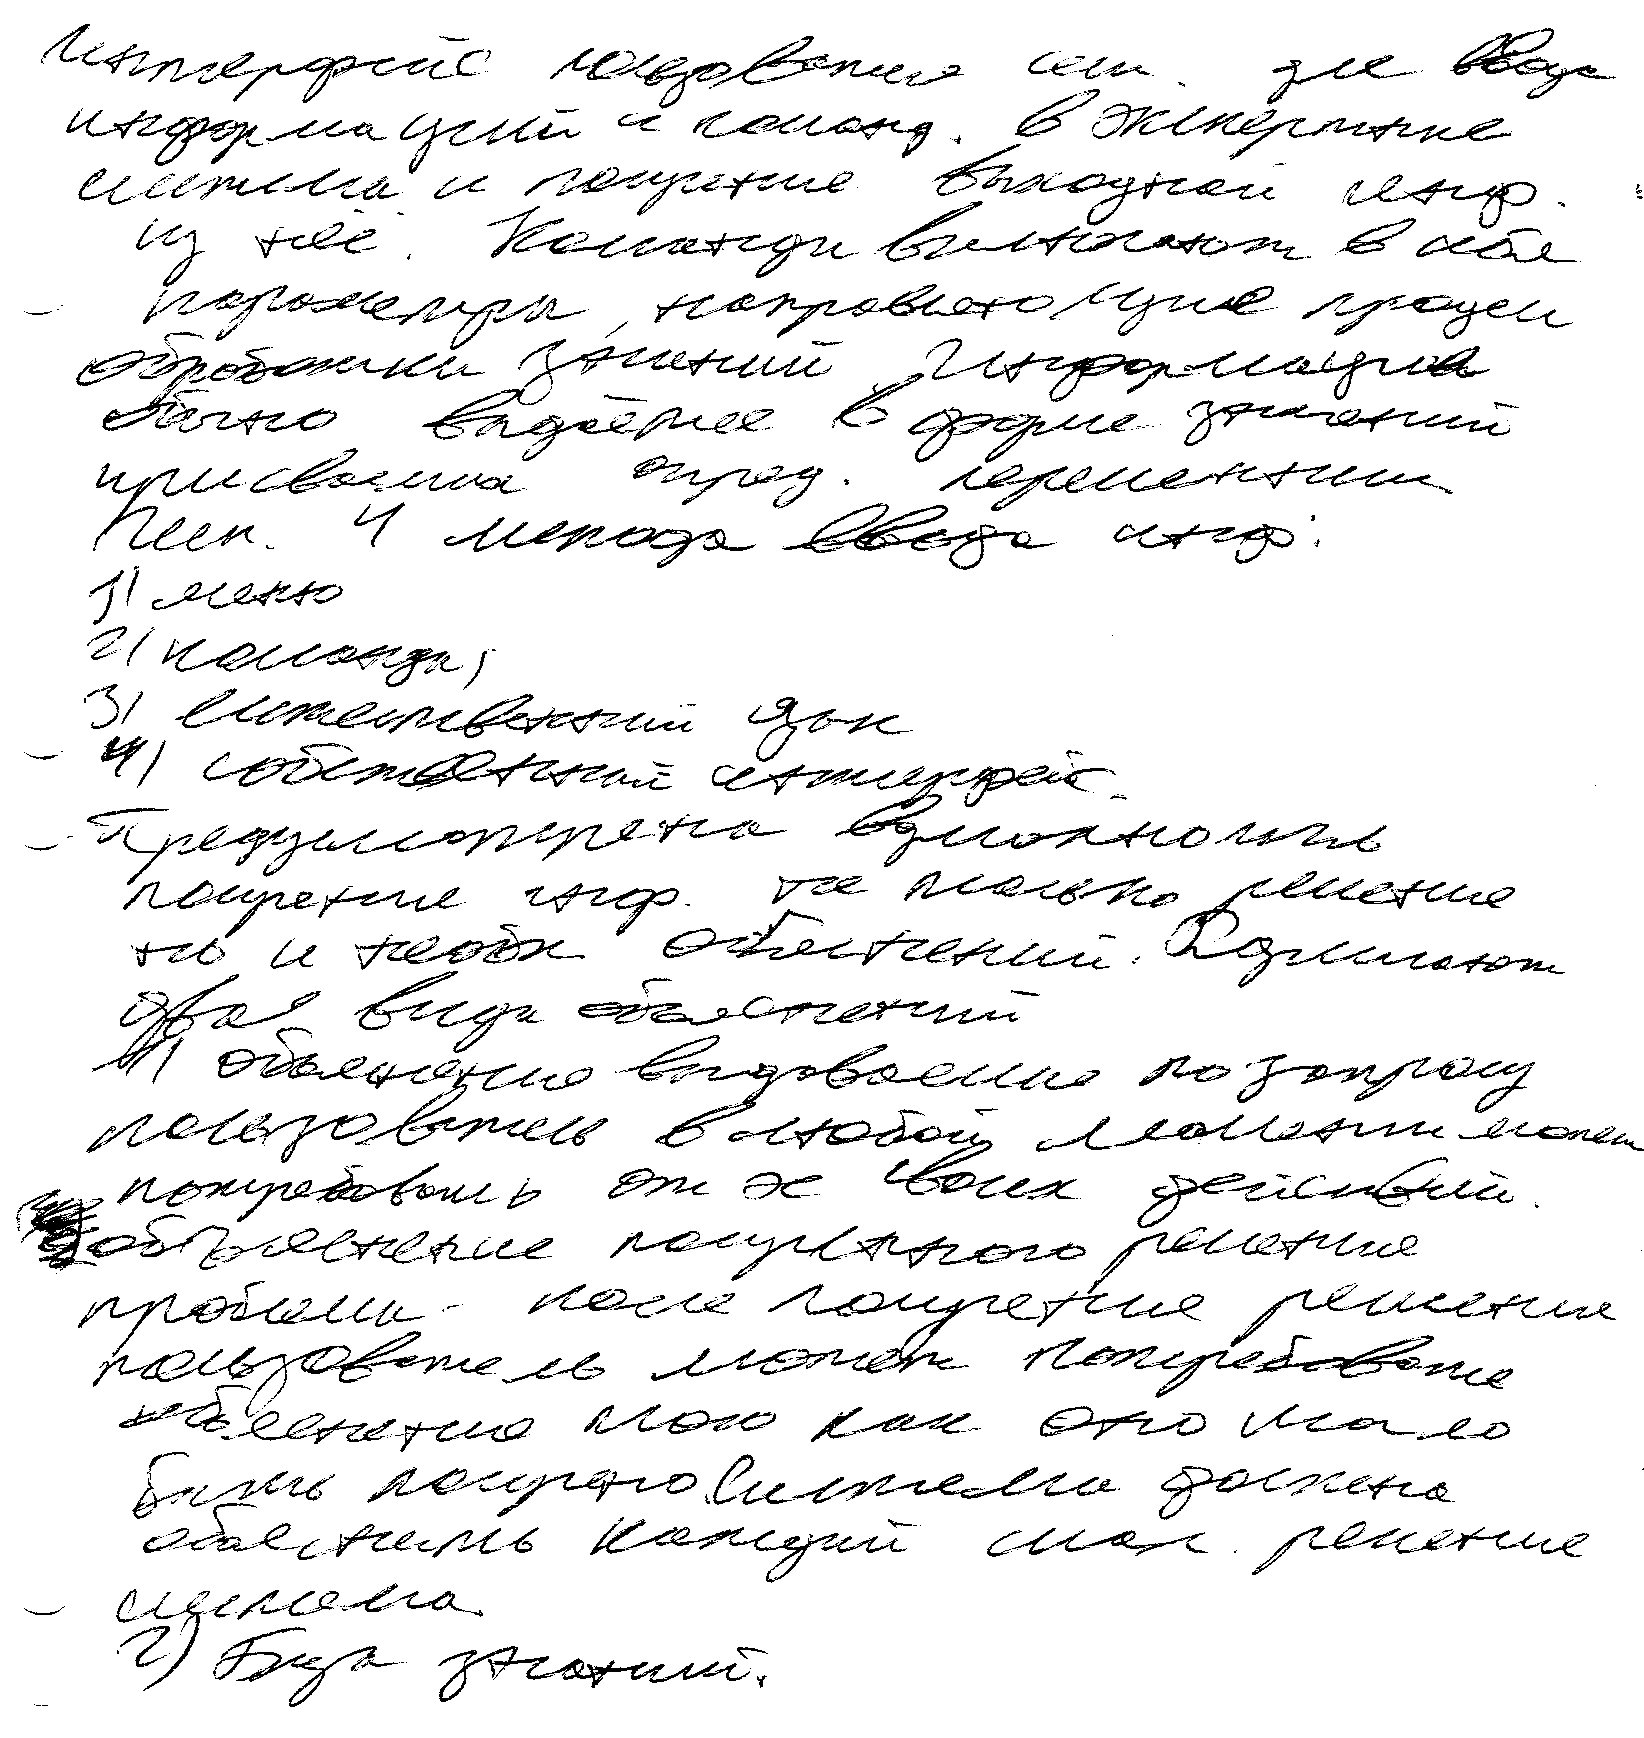 Интерфейс пользователя исп. для ввода
информаций и команд. в экспертные
система и получение выходной инф.
из неё. Команди вклюючают в себя
параметры, направляющие процесс
обработки знаний. Информация
обычно выдаётся в форме значений
присваема опред. переменным
Исп. 4 метода ввода инф:
1) меню
2) команды;
3) естественний язык
4) собственный интерфейс.
Предусмотрена возможность
получение инф. не только решение
но и необх объяснений. Различают
два вида объяснений
1) объяснение выдаваемие по запросу
пользователь в любой момент может
потребовать от эс своих действий.
объяснение полученного решение
проблемы - после получение решение
пользователь может потребовать
объяснение того как оно мало
быть получено Система должна
объяснить каждий шаг решение
система
2) База знаний.